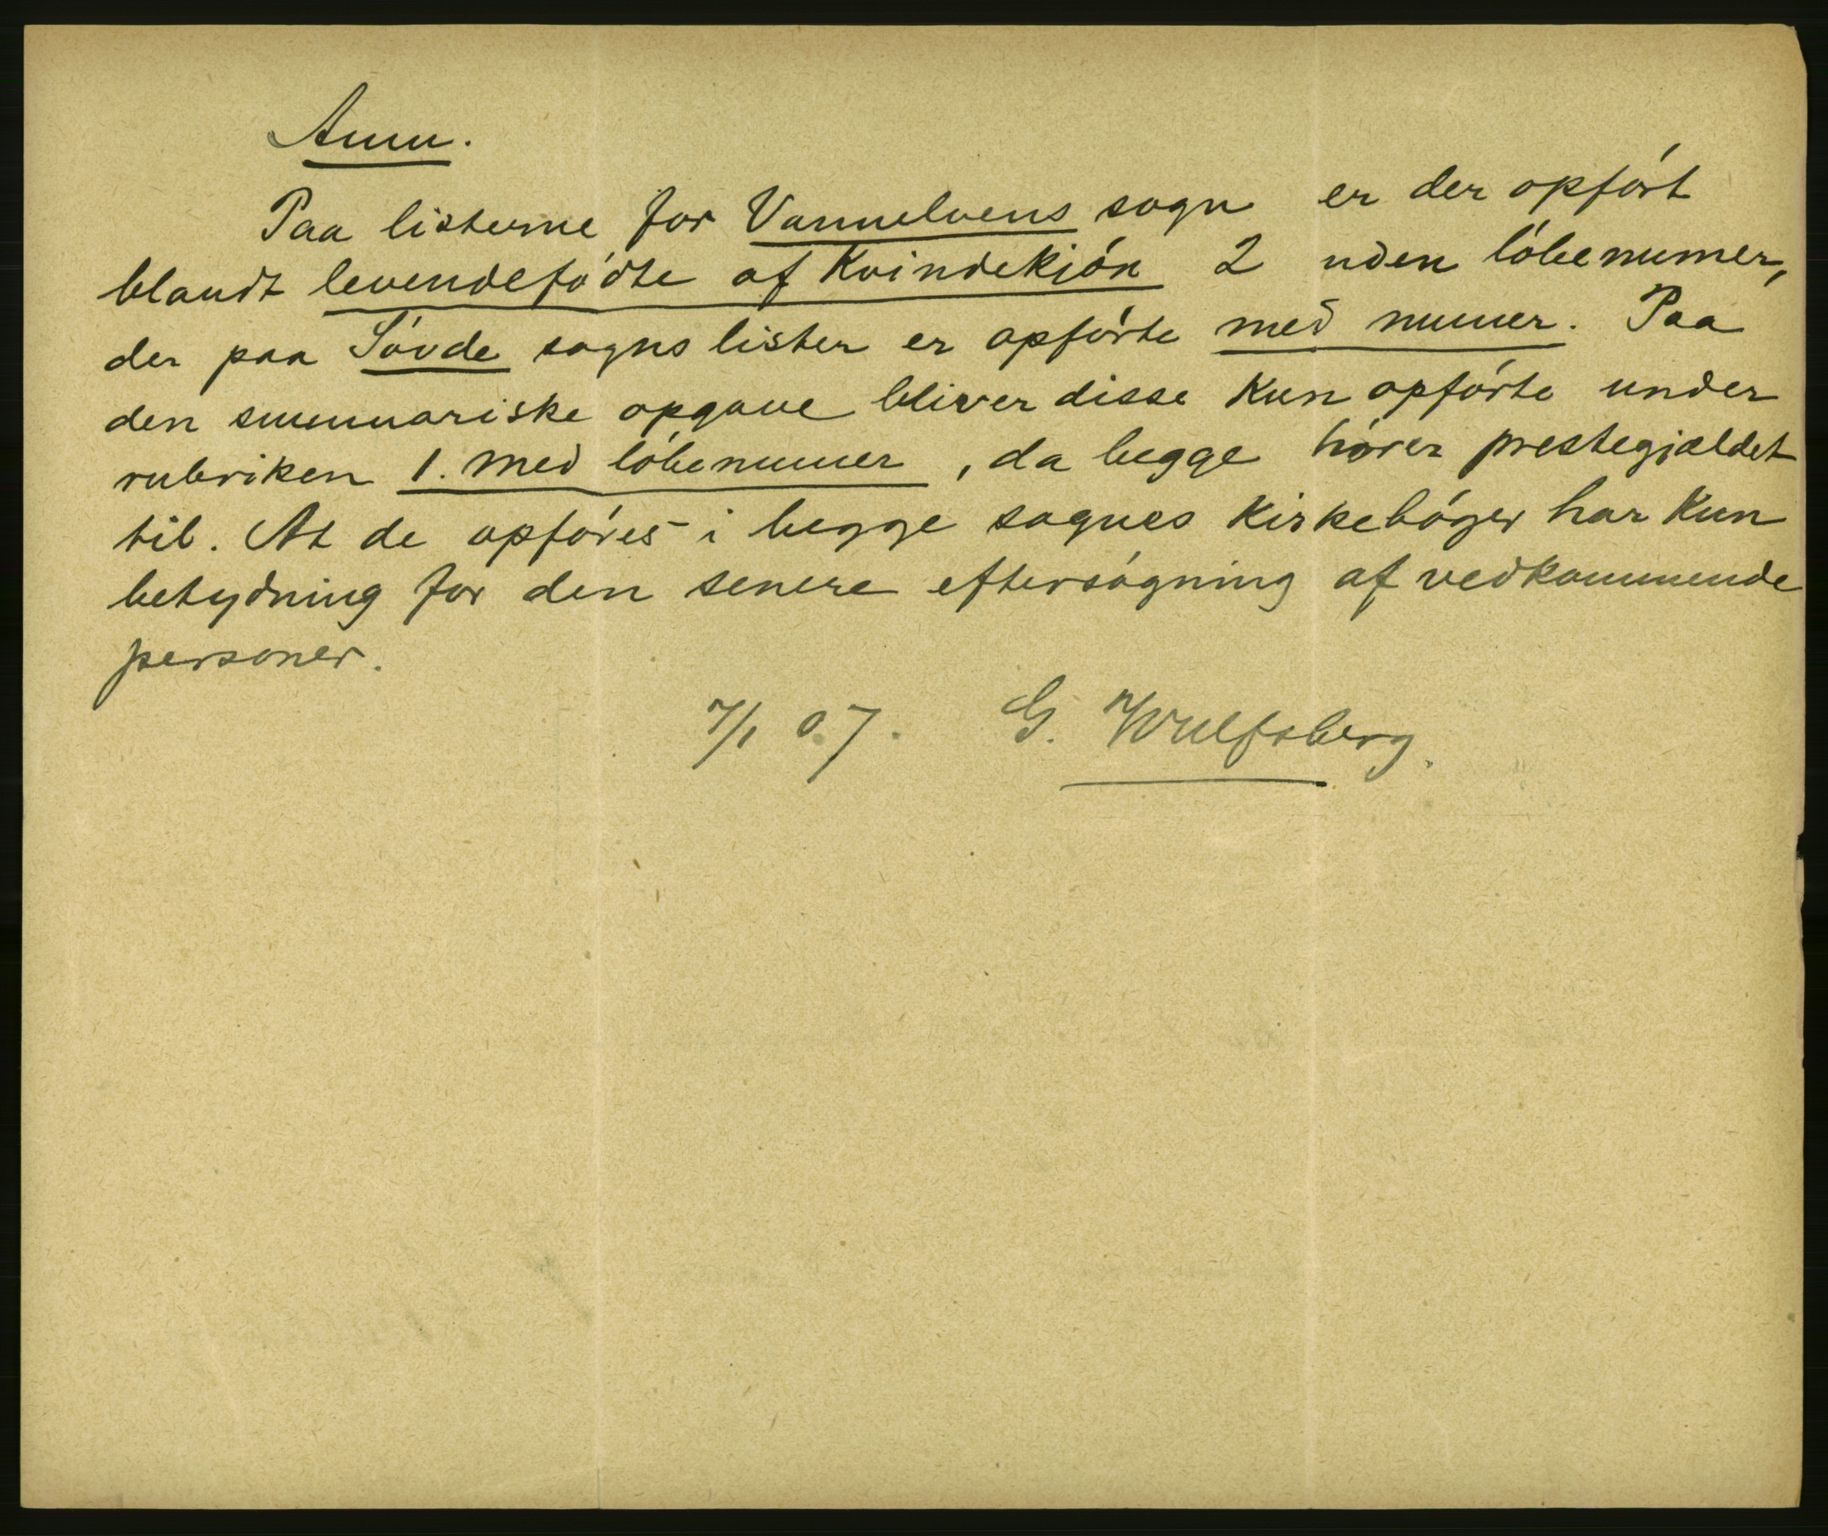 Anm.
Paa listerne for Vannelvens sogn er der opført
blandt levendefødte af Kvindekjøn 2 uden løbenumer,
der paa Søvde sogns lister er opførte med numer. Paa
den summariske opgave bliver disse Kun opførte under
rubriken 1. med løbenumer, da begge hører prestegjældet
til. At de opføres i begge sognes Kirkebøger har Kun
betydning for den senere eftersøgning af vedkommende
personer.
7/1 07. G. Wulfsberg.